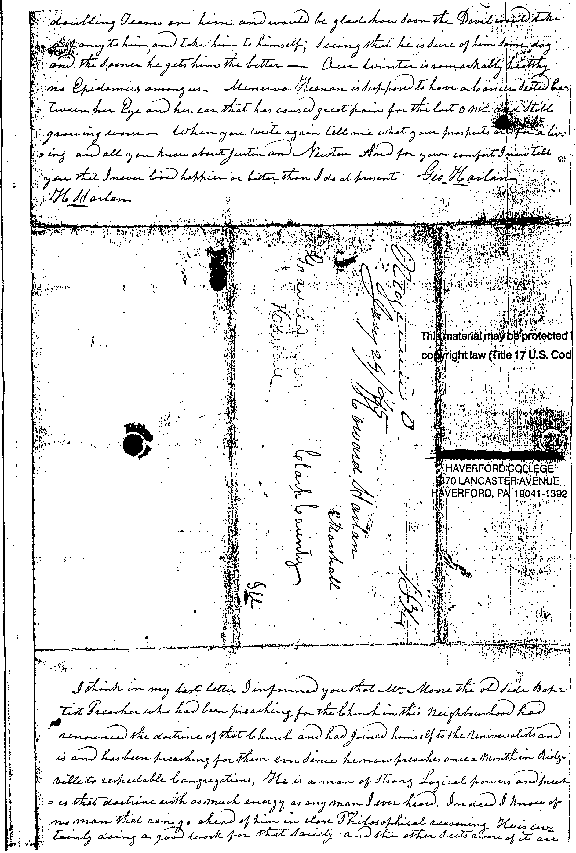 doubling Teams on him and would be glad how soon the Devil would take
to him, and take him to himself; seeing that he is sure of him some day
and the sooner he gets him the better — Our winter is remarkably healthy
no Epidemics among us — Menerva Keenan is supposed to have a cancer seated be
tween her Eye and her ear that has caused great pain for the last and still
growing worse — When you write again tell me what your prospects are for a liv
ing and all you know about Justin and Newton And for your comfort I now tell
you that I never lived happier or better than I do at present Geo. Harlan
H. Harlan
Ridgeville O
Jany 29/45
Howard Harlan
Marshall
Clark County
Ill
This material may be protected
copyright law (Title 17 U.S. Cod
HAVERFORD COLLEGE
370 LANCASTER AVENUE
HAVERFORD, PA 19041-1392
I think in my last letter I informed you that Mr. Moore the old side Bap-
tist Preacher who had been preaching for the Church in this Neighbourhood had
renounced the doctrine of that Church and had joined himself to the Universalists and
is and has been preaching for them ever since he now preaches once a Month in Ridge-
ville to respectable Congregations, He is a man of strong Logical powers and preach
-es that doctrine with as much energy as any man I ever heard. Indeed I know of
no man that can go ahead of him in close Philosophical reasoning. He is cer
tainly doing a good work for that Society and the other Sects aware of it are